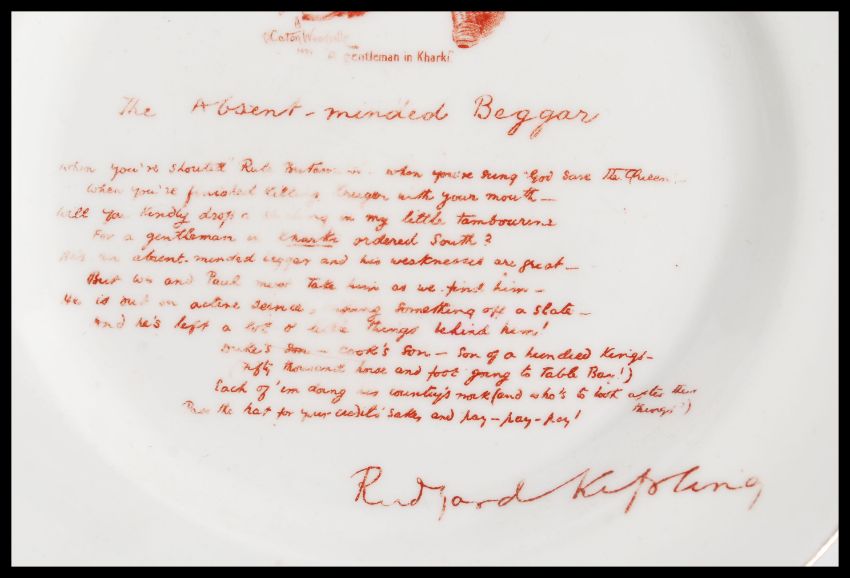 Caton Woodville
A gentleman in Kharki
The Absent-minded Beggar
When you've shouted "Rule Britannia" when you've sung "God Save the Queen"—
When you've finished Killing Kruger with your mouth—
Will you Kindly drop a in my little tambourine
For a gentleman in Kharki ordered South?
He's an absent-minded beggar and his weaknesses are great—
But we and Paul must take him as we find him—
He is out on active service, wiping something off a slate—
And he's left a lot o' little things behind him!
Duke's Son – Cook's Son – Son of a hundred Kings–
Fifty thousand horse and foot going to Table Bay!)
Each of 'em doing his country's work (and who's to look after their
things?)
Pass the hat for your credit's sake, and pay–pay–pay!
Rudyard Kipling